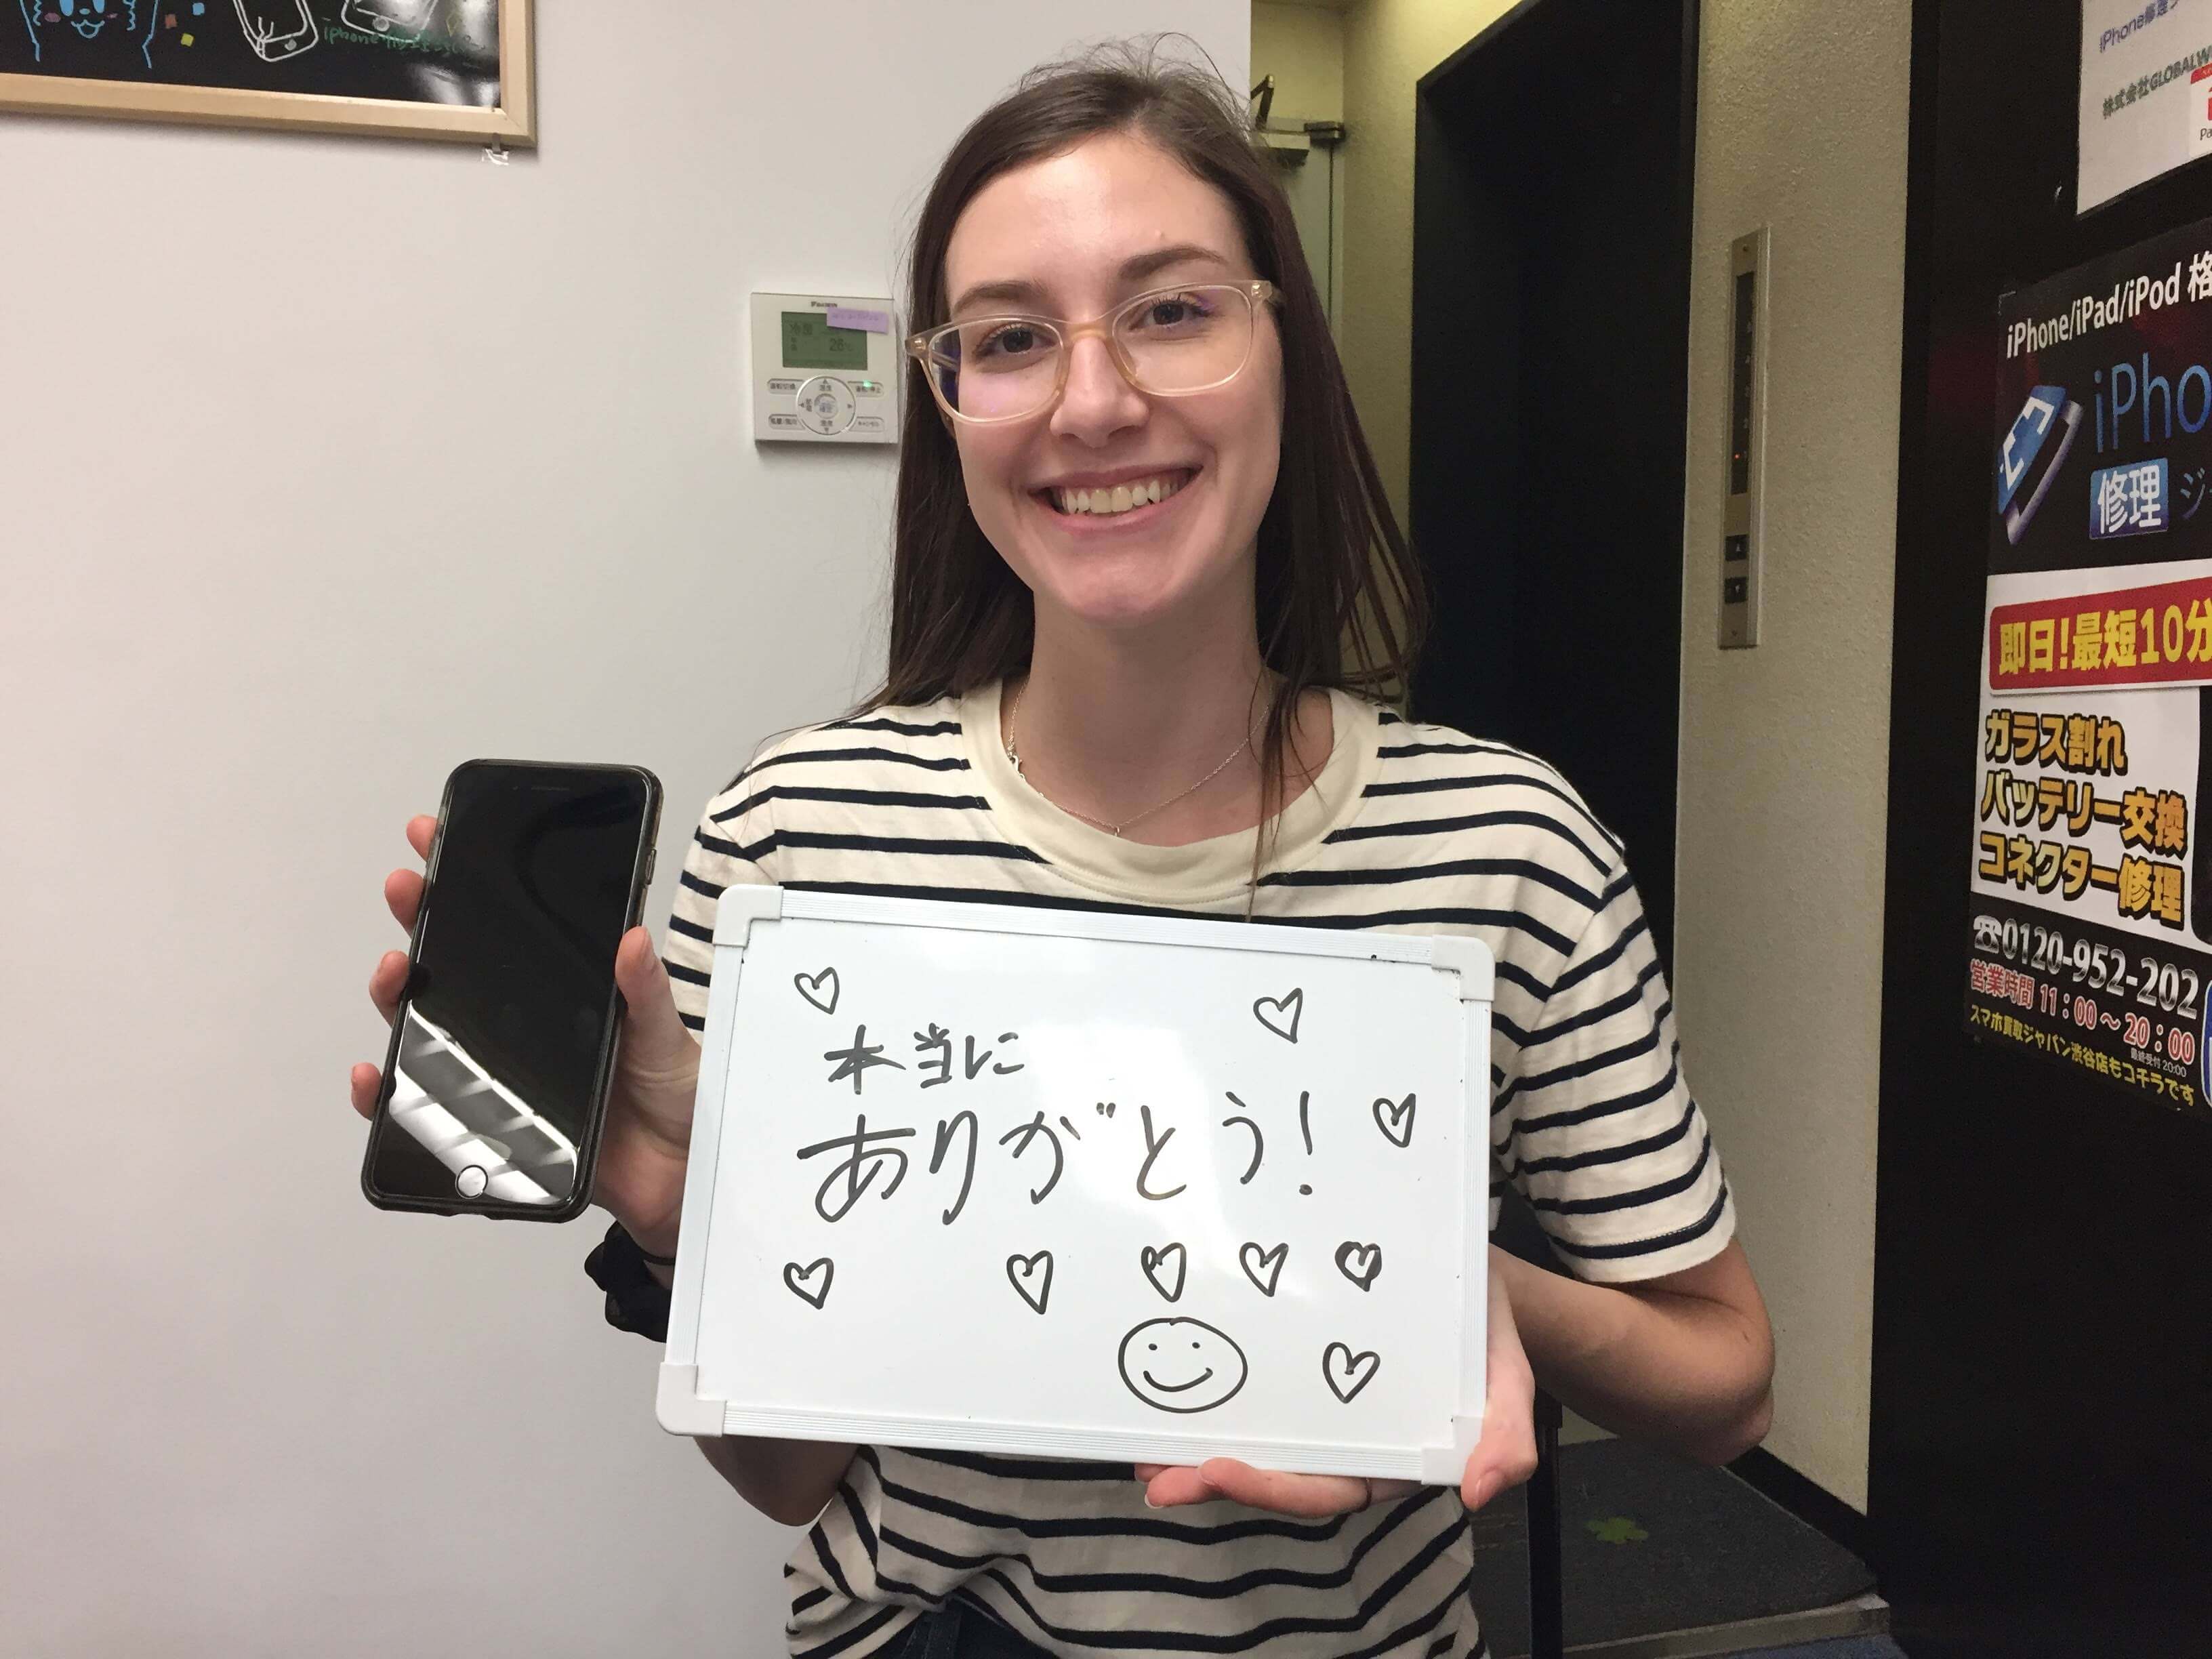 iphone修理
28
iPhone修理
株式会社GLOBALW
iPhone/iPad/iPod 格
iPho
修理 ジ
即日!最短10分
ガラス割れ
バッテリー交換
コネクター修理
☎0120-952-202
営業時間 11:00～20:00
最終受付 20:00
スマホ買取ジャパン渋谷店もコチラです
本当に
ありがとう!